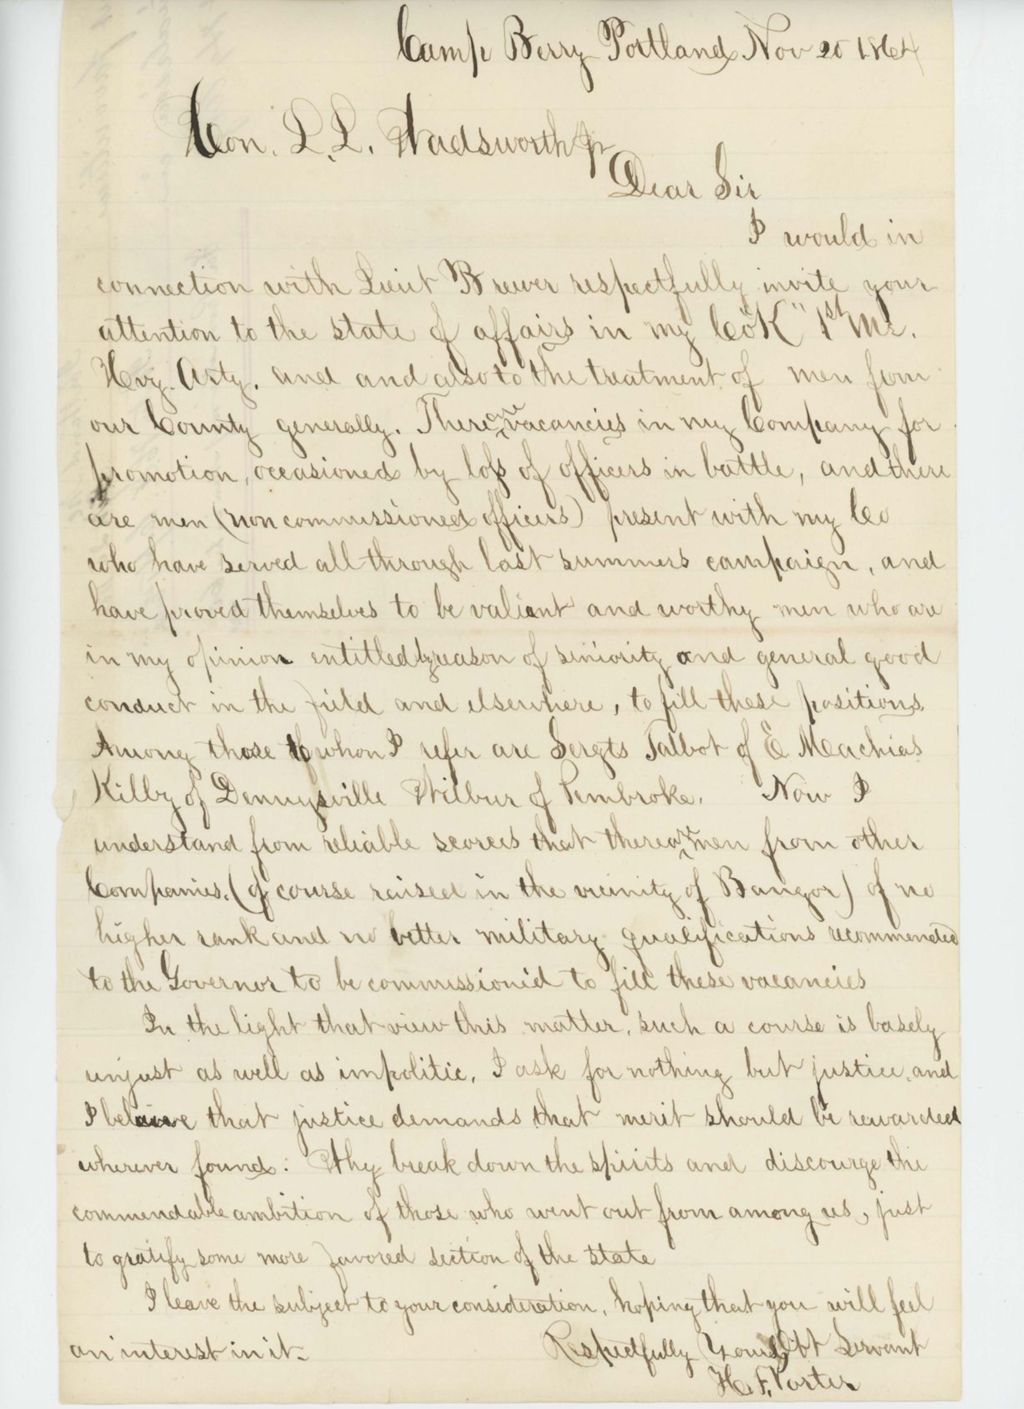 Camp Berry Portland Nov 20 1864
Hon. L. L. Wadsworth Jr
Dear Sir
I would in
connection with Lieut Brewer respectfully invite your
attention to the state of affairs in my Co "K" 1st Me.
Hvy. Arty. and and also to the treatment of men from
our County generally. There are vacancies in my Company for
promotion, occasioned by loss of officers in battle, and there
are men (non commissioned officers) present with my Co
who have served all through last summers campaign, and
have proved themselves to be valient and worthy men who are
in my opinion entitled by reason of seniority and general good
conduct in the field and elsewhere, to fill these positions.
Among those to whom I refer are Sergts Talbot of E Machias
Kilby of Dennysville Wilbur of Pembroke. Now I
understand from reliable scorces that there are men from other
Companies. (of course raised in the vicinity of Bangor) of no
higher rank and no better military qualifications recommended
to the Governor to be commissioned to fill these vacancies
In the light that view this matter, such a course is basely
unjust as well as impolitic, I ask for nothing but justice, and
I beleive that justice demands that merit should be rewarded
wherever found: Why break down the spirits and discourge the
commendable ambition of those who went out from among us, just
to gratify some more favored section of the state
I leave the subject to your consideration, hoping that you will feel
an interest in it.
Respectfully Yours Obt Servant
H. F. Porter